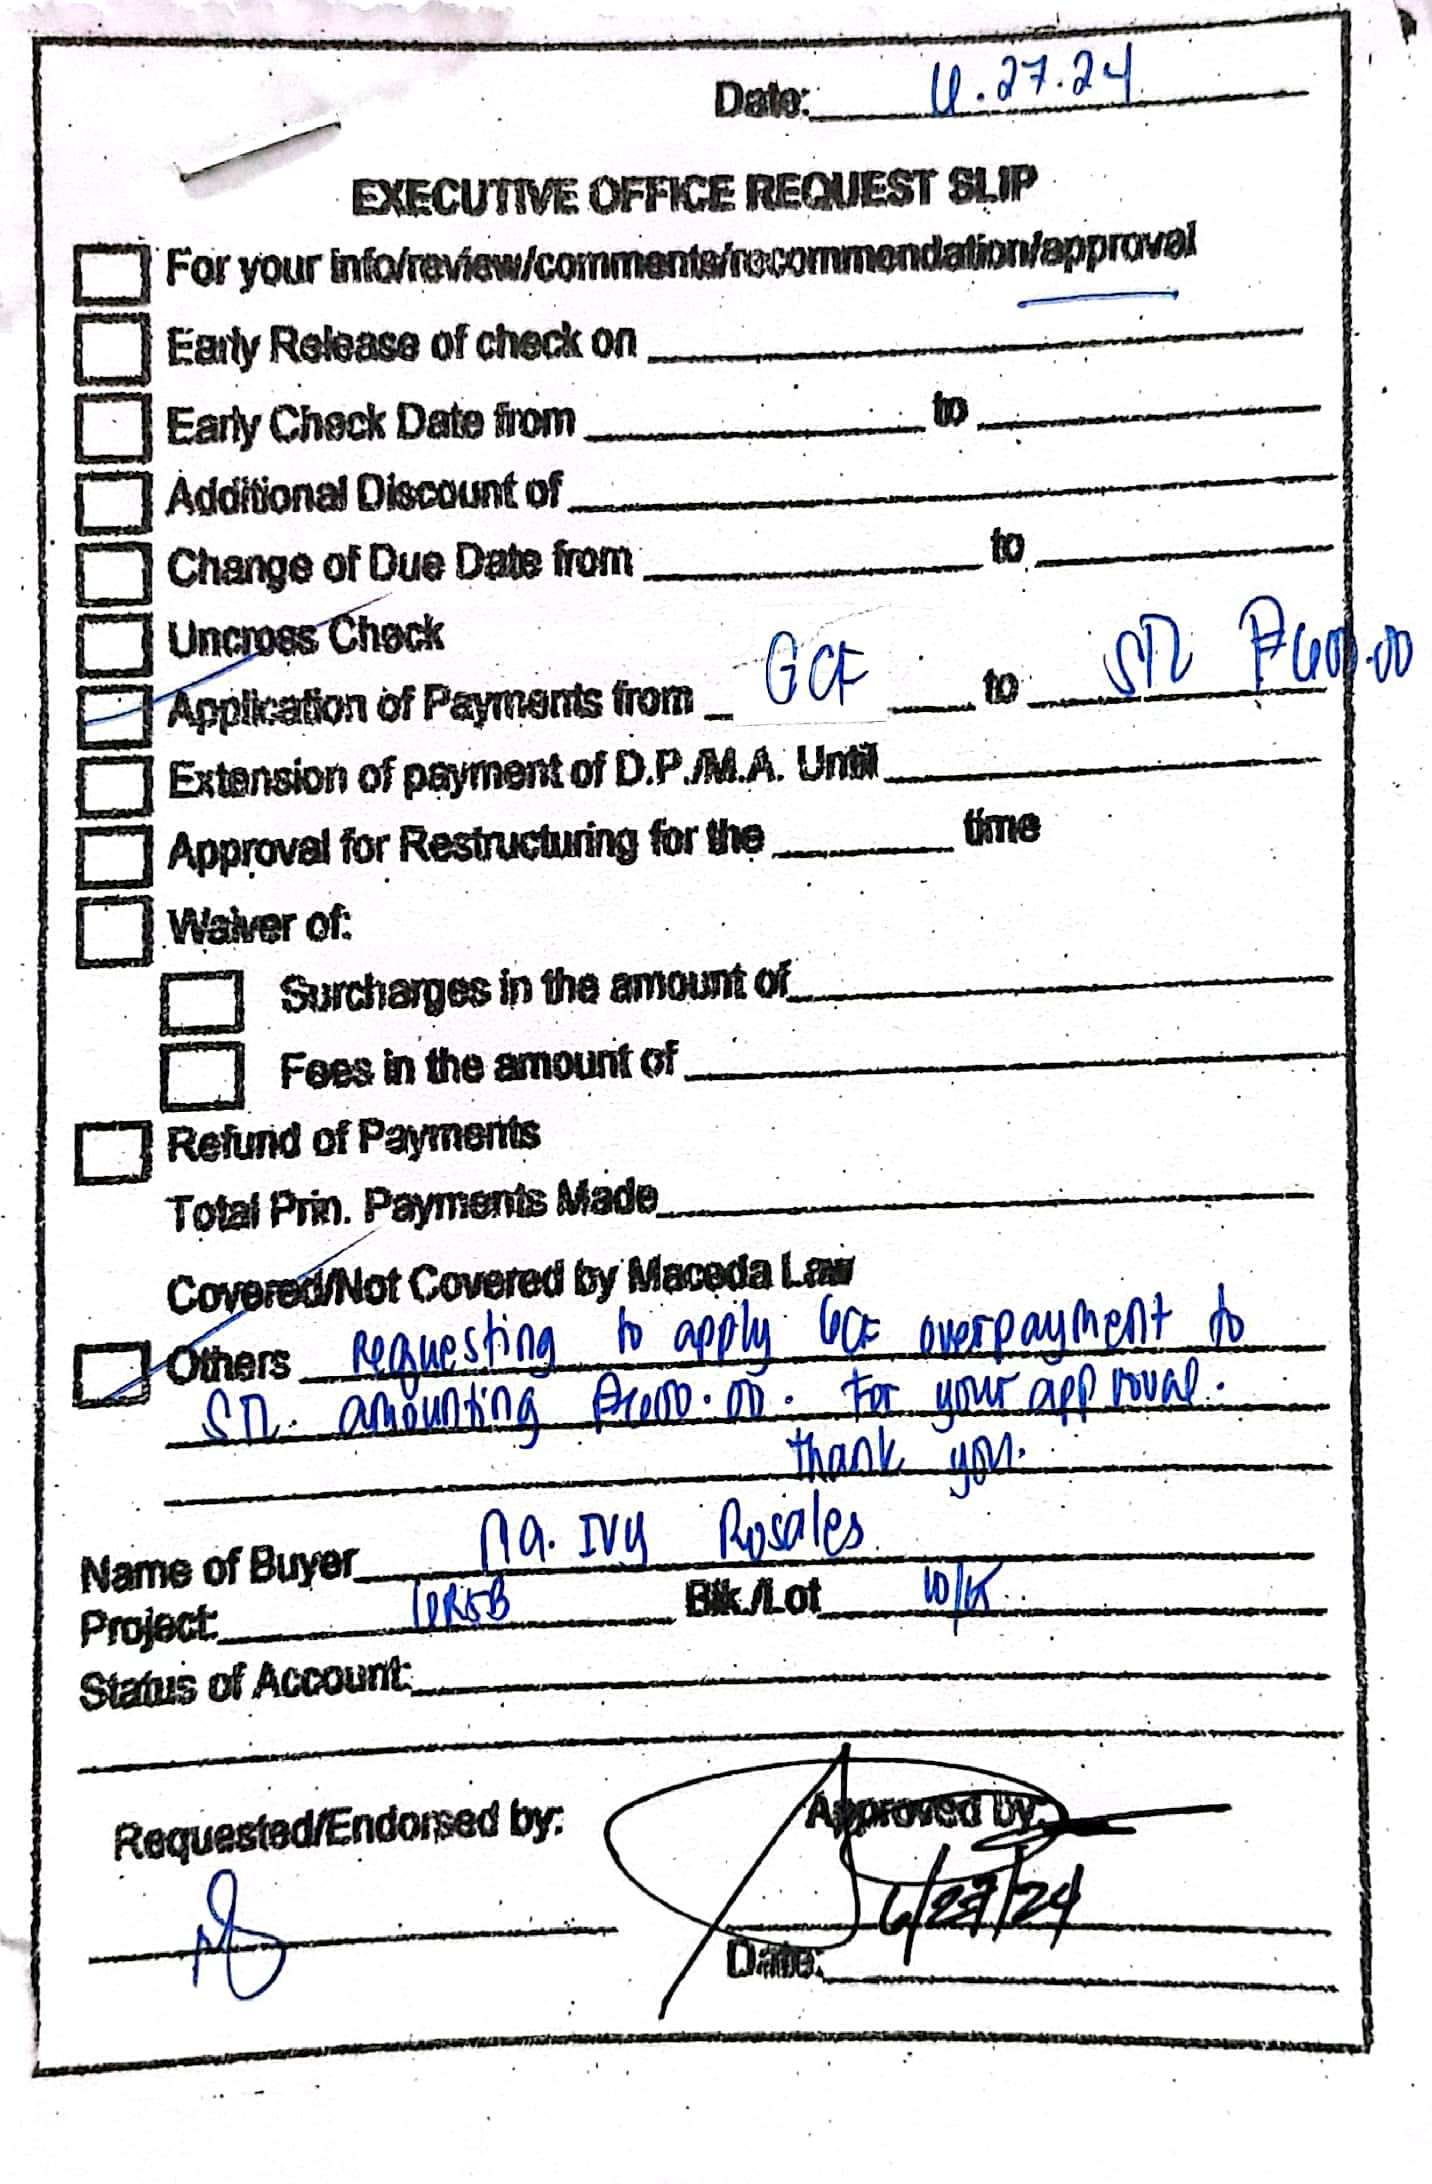 Date: 6.27.24
EXECUTIVE OFFICE REQUEST SLIP
For your info/review/comments/recommendation/approval
Early Release of check on
Early Check Date from to
Additional Discount of
Change of Due Date from to
Uncross Check
Application of Payments from GCF to STL ₱600.00
Extension of payment of D.P./M.A. Until
Approval for Restructuring for the time
Waiver of:
Surcharges in the amount of
Fees in the amount of
Refund of Payments
Total Prin. Payments Made
Covered/Not Covered by Maceda Law
Others Requesting to apply GCF overpayment to
STL amounting ₱600.00. For your approval.
Thank you.
Name of Buyer Ma. Ivy Rosales
Project: Blk./Lot
Status of Account:
Requested/Endorsed by: Approved by:
6/27/24
Date: